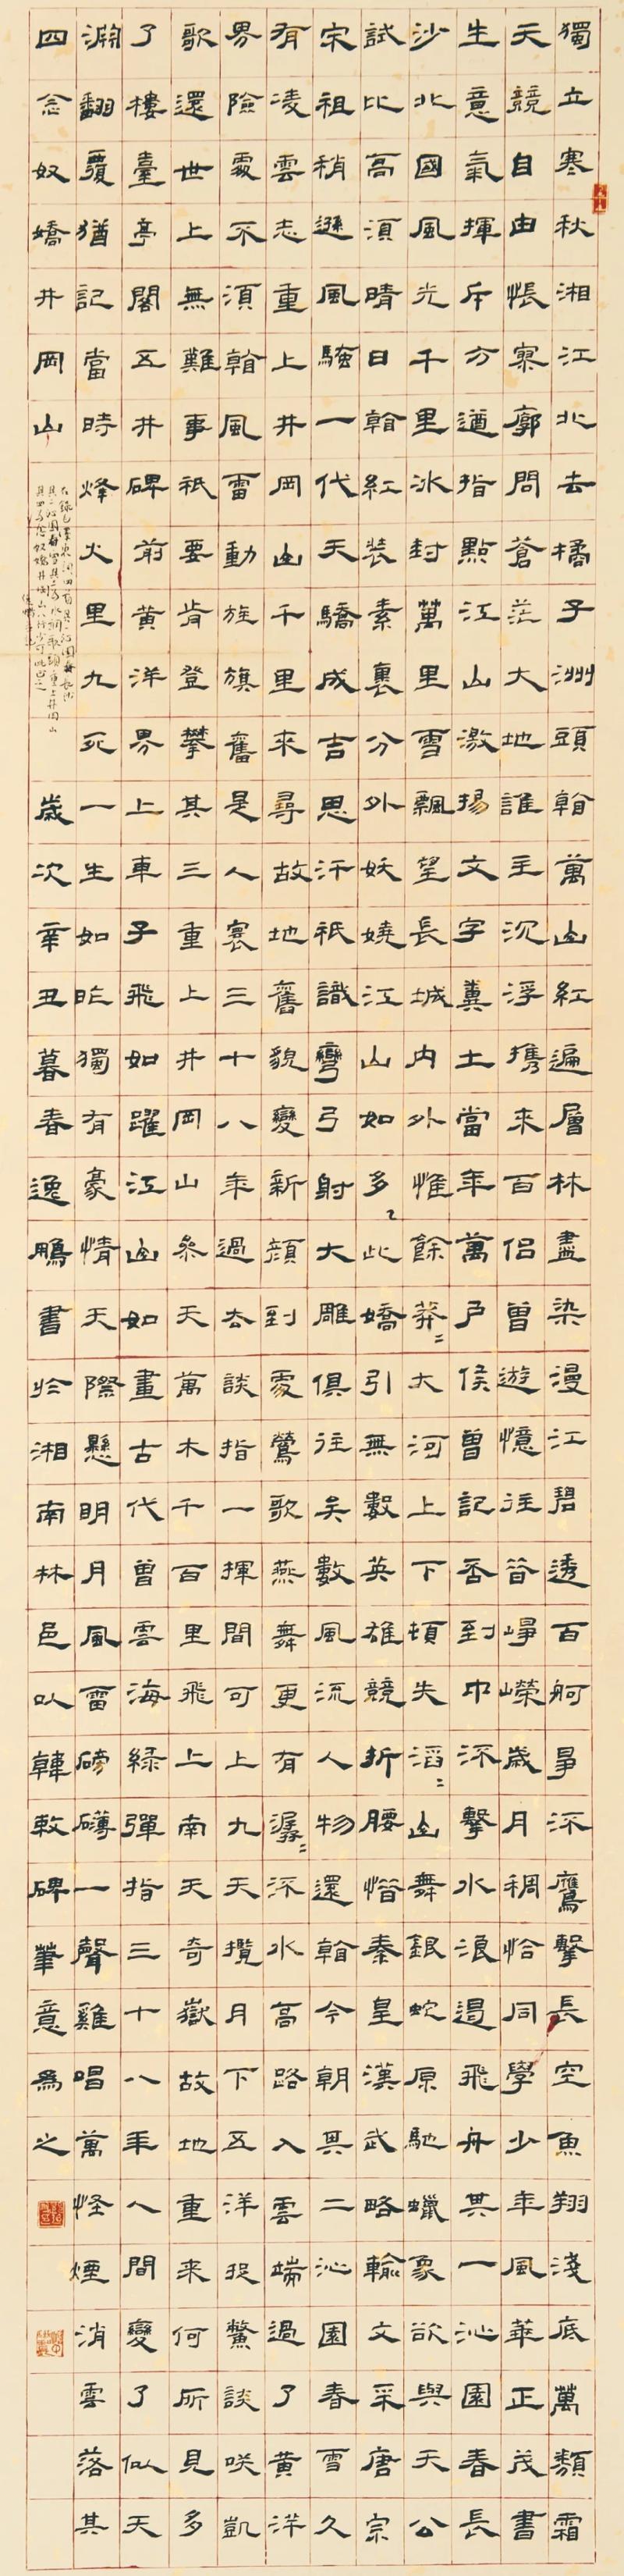 獨立寒秋湘江北去橘子洲頭看萬山紅遍層林盡染漫江碧透百舸爭流鷹擊長空魚翔淺底萬類霜
天競自由悵寥廓問蒼茫大地誰主沉浮攜來百侶曾遊憶往昔崢嶸歲月稠恰同學少年風華正茂書
生意氣揮斥方遒指點江山激揚文字糞土當年萬戶侯曾記否到中流擊水浪遏飛舟其一沁園春長
沙北國風光千里冰封萬里雪飄望長城內外惟餘莽〻大河上下頓失滔〻山舞銀蛇原馳蠟象欲與天公
試比高須晴日看紅裝素裹分外妖嬈江山如多此嬌引無數英雄競折腰惜秦皇漢武略輸文采唐宗
宋祖稍遜風騷一代天驕成吉思汗祇識彎弓射大雕俱往矣數風流人物還看今朝其二沁園春雪久
有凌雲志重上井岡山千里來尋故地舊貌變新顏到處鶯歌燕舞更有潺〻流水高路入雲端過了黃洋
界險處不須看風雷動旌旗奮是人寰三十八年過去談指一揮間可上九天攬月下五洋捉鱉談咲凱
歌還世上無難事祇要肯登攀其三重上井岡山參天萬木千百里飛上南天奇嶽故地重来何所見多
了樓臺亭閣五井碑前黃洋界上車子飛如躍江山如畫古代曾雲海綠彈指三十八年人間變了似天
淵翻覆猶記當時烽火里九死一生如昨獨有豪情天際懸明月風雷磅礴一聲雞唱萬怪煙消雲落其
四念奴嬌井岡山
右錄毛澤東詞四首其一沁園春長沙
其二沁園春雪其三水調歌頭重上井岡山
其四念奴嬌井岡山
歲次辛丑暮春逸鵬書於湘南林邑以韓敕碑筆意為之